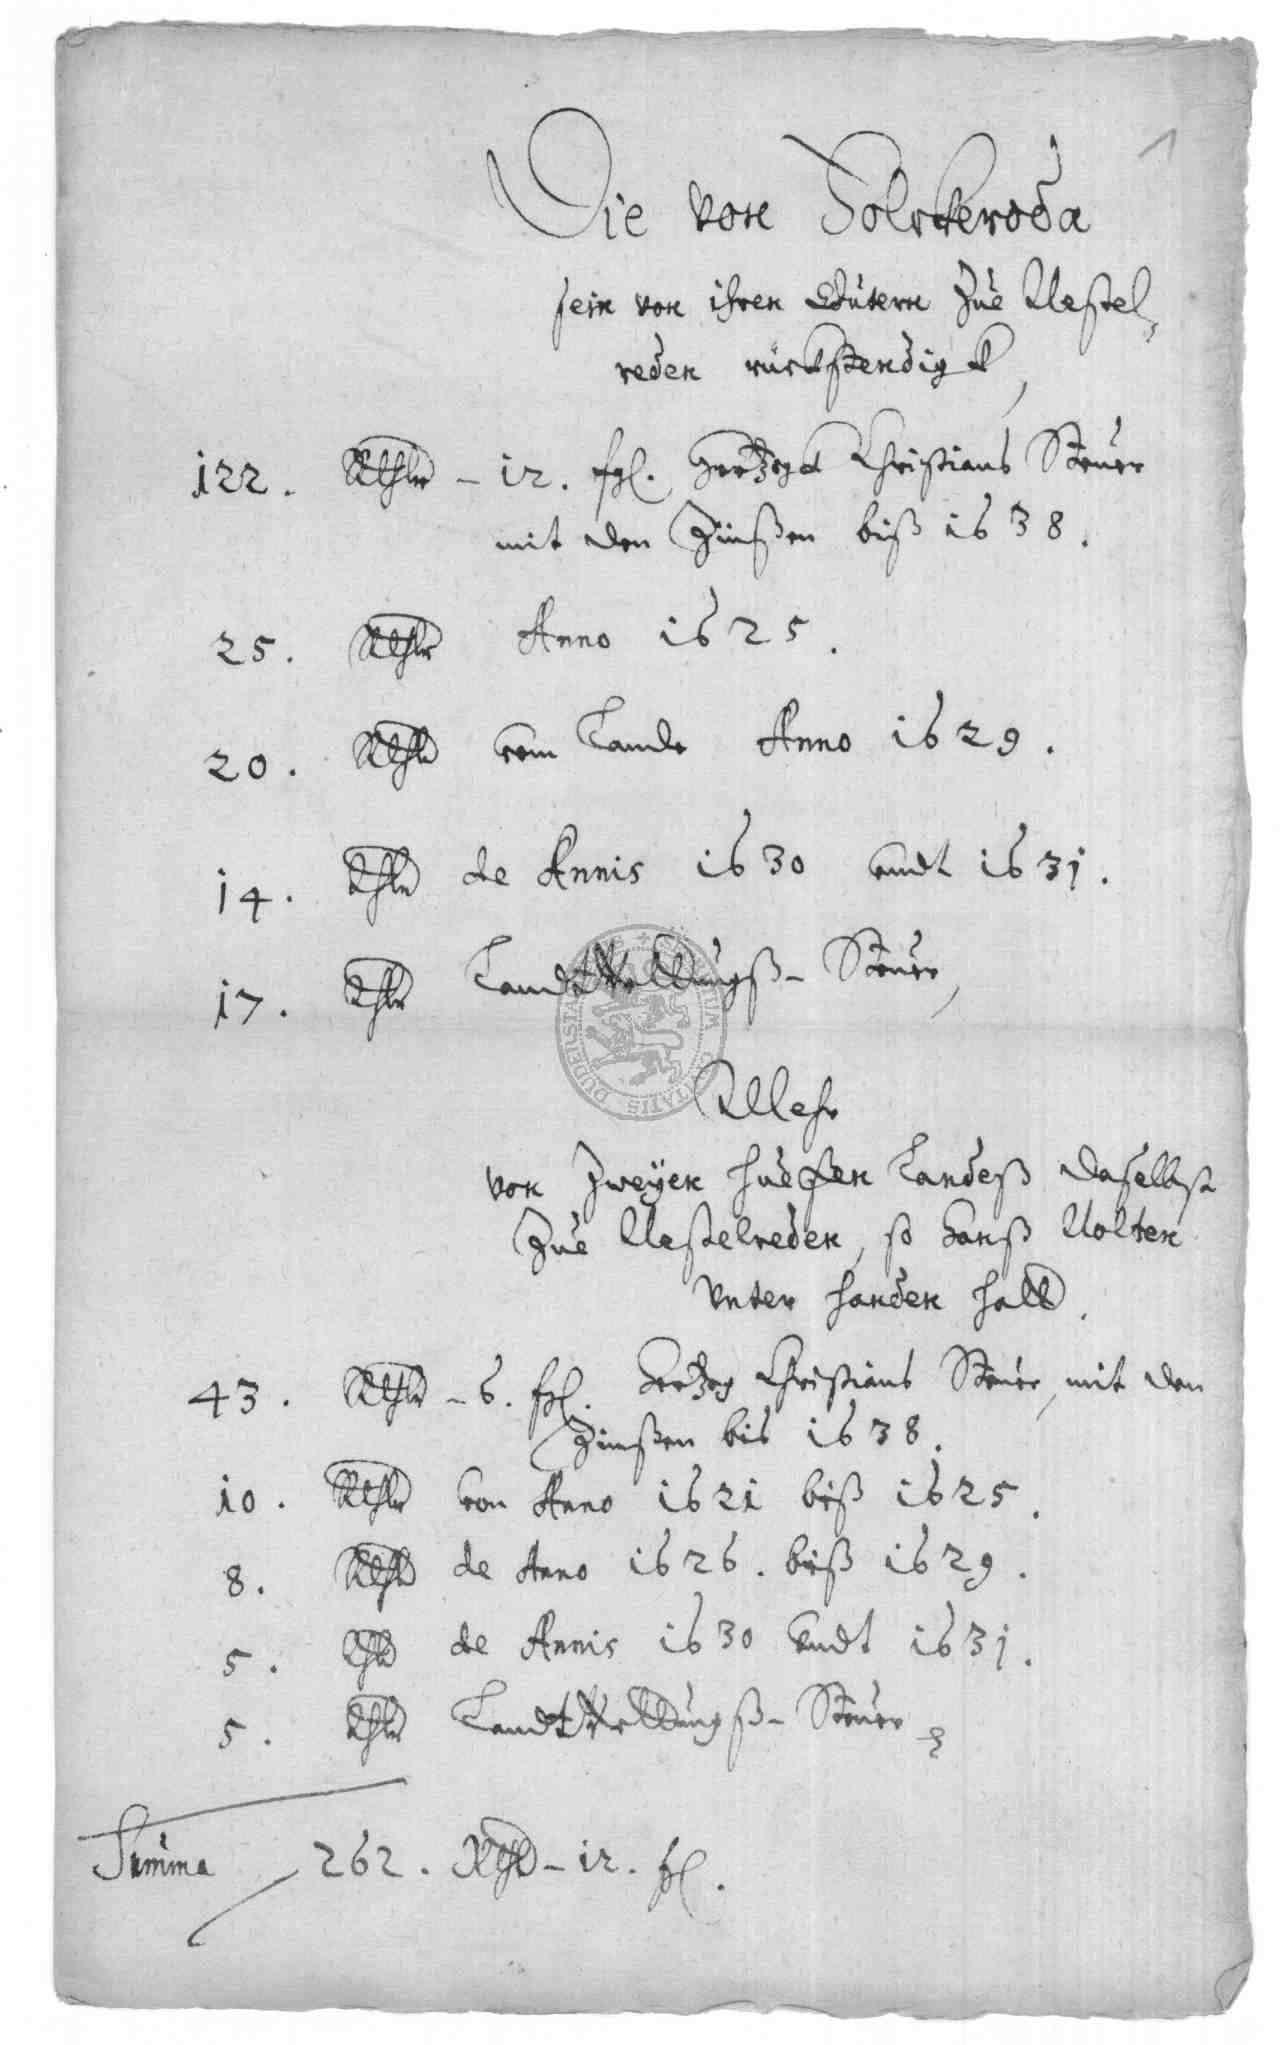 1
Die von Volckeroda
sein von ihren Gütern Zue Nestel,,
reden rückstendigk,
122. Rthlr - 12. fgl. Hertzogk Christians Steuer
mit den Zinßen biß 1638.
25. Rthlr Anno 1625.
20. Rthlr vom Lande Anno 1629.
14. Rthlr de Annis 1630 undt 1631.
17. Rthlr Landt Rettungß-Steuer,
Mehr
von Zweÿen huefen Landeß daselbst
Zue Nestelreden, so Hanß Nolten
unter handen hatt.
43. Rthlr - 6. fgl. Hertzog Christians Steuer, mit den
Zinßen bis 1638.
10. Rthlr von Anno 1621 biß 1625.
8. Rthlr de Anno 1626. biß 1629.
5. Rthlr de Annis 1630 undt 1631.
5. Rthlr Landt Rettungß-Steuer
Summa 262. Rthlr - 12. fgl.
SIGILLUM CIVITATIS DUDERSTA